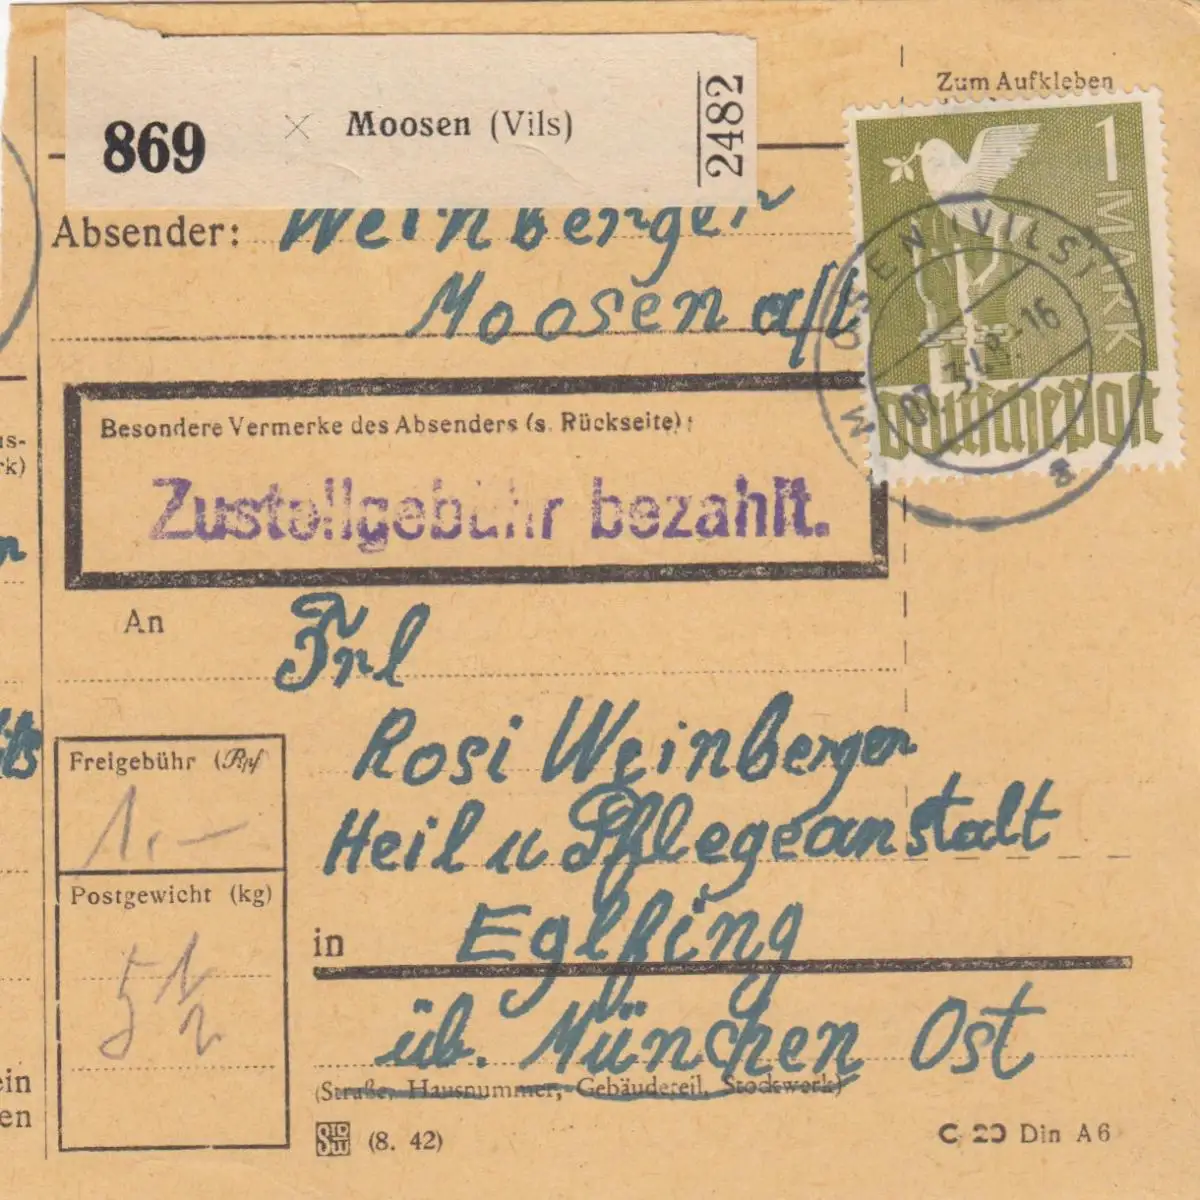 Zum Aufkleben
869 × Moosen (Vils) 2482
1 MARK
Deutsche Post
MOOSEN (VILS)
a
Absender: Weinberger
Moosen a/
Besondere Vermerke des Absenders (s. Rückseite):
Zustellgebühr bezahlt.
An Frl
Rosi Weinberger
Heil u Pflegeanstalt
in Eglfing
üb. München Ost
(Straße, Hausnummer, Gebäudeteil, Stockwerk)
Freigebühr (Rpf
1,—
Postgewicht (kg)
5 1/2
(8. 42)
C 20 Din A6
rk)
ein
en